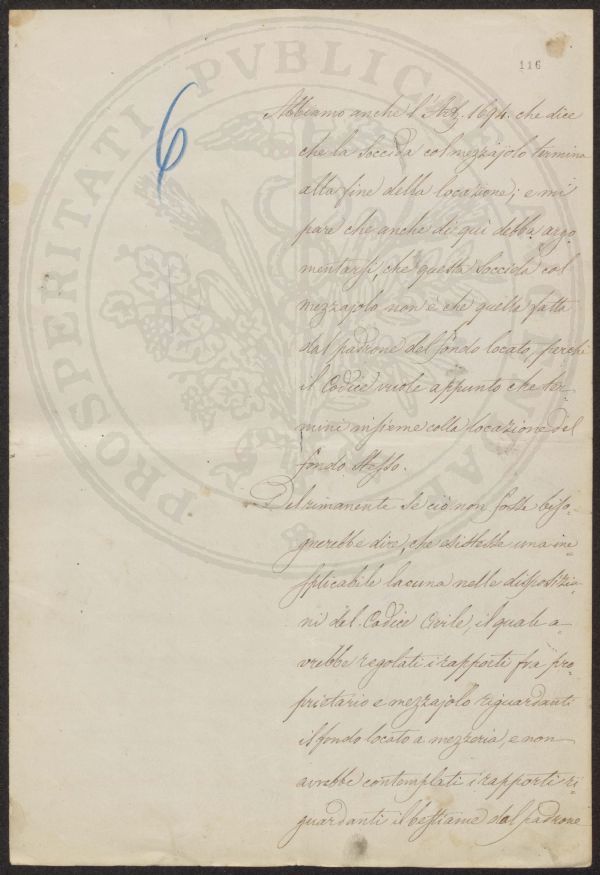 116
6
Abbiamo anche l'Art. 1694. che dice
che la Soccida col mezzajolo termina
alla fine della locazione; e mi
pare che anche di qui debba argo
mentarsi, che questa Soccida col
mezzajolo non è che quella fatta
dal padrone del fondo locato, perchè
il Codice vuole appunto che ter-
mini insieme colla locazione del
fondo stesso.
Del rimanente se ciò non fosse biso-
gnerebbe dire, che esistesse una ine
splicabile lacuna nelle disposizio-
ni del Codice Civile, il quale a-
vrebbe regolati i rapporti fra pro-
prietario e mezzajolo riguardanti
il fondo locato a mezzeria, e non
avrebbe contemplati i rapporti ri-
guardanti il bestiame dal padrone
PROSPERITATI PVBLICAE